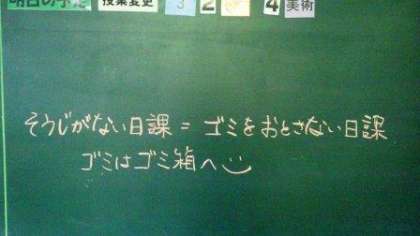 明日の予定 授業変更 3 2 4 美術
そうじがない日課＝ゴミをおとさない日課
ゴミはゴミ箱へ